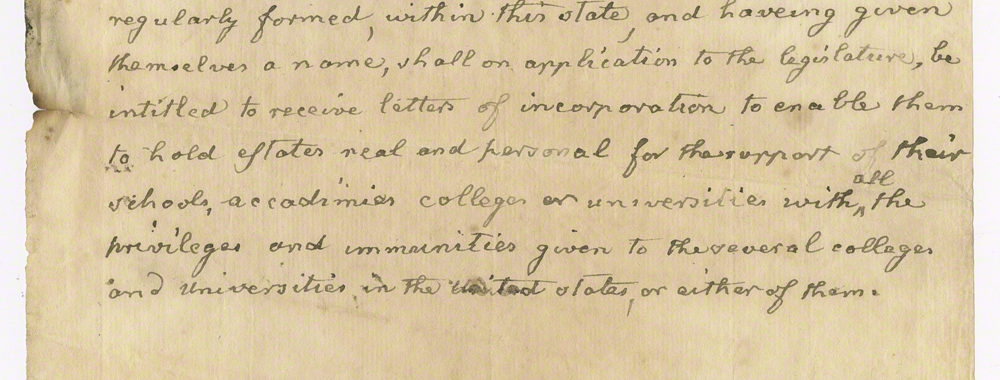 regularly formed, within this state, and haveing given
themselves a name, shall on application to the legislature, be
intitled to receive letters of incorporation to enable them
to hold estates real and personal for the support of their
schools, accadimies colleges or universities with ^all the
privileges and immunities given to the several colleges
and universities in the united states, or either of them.